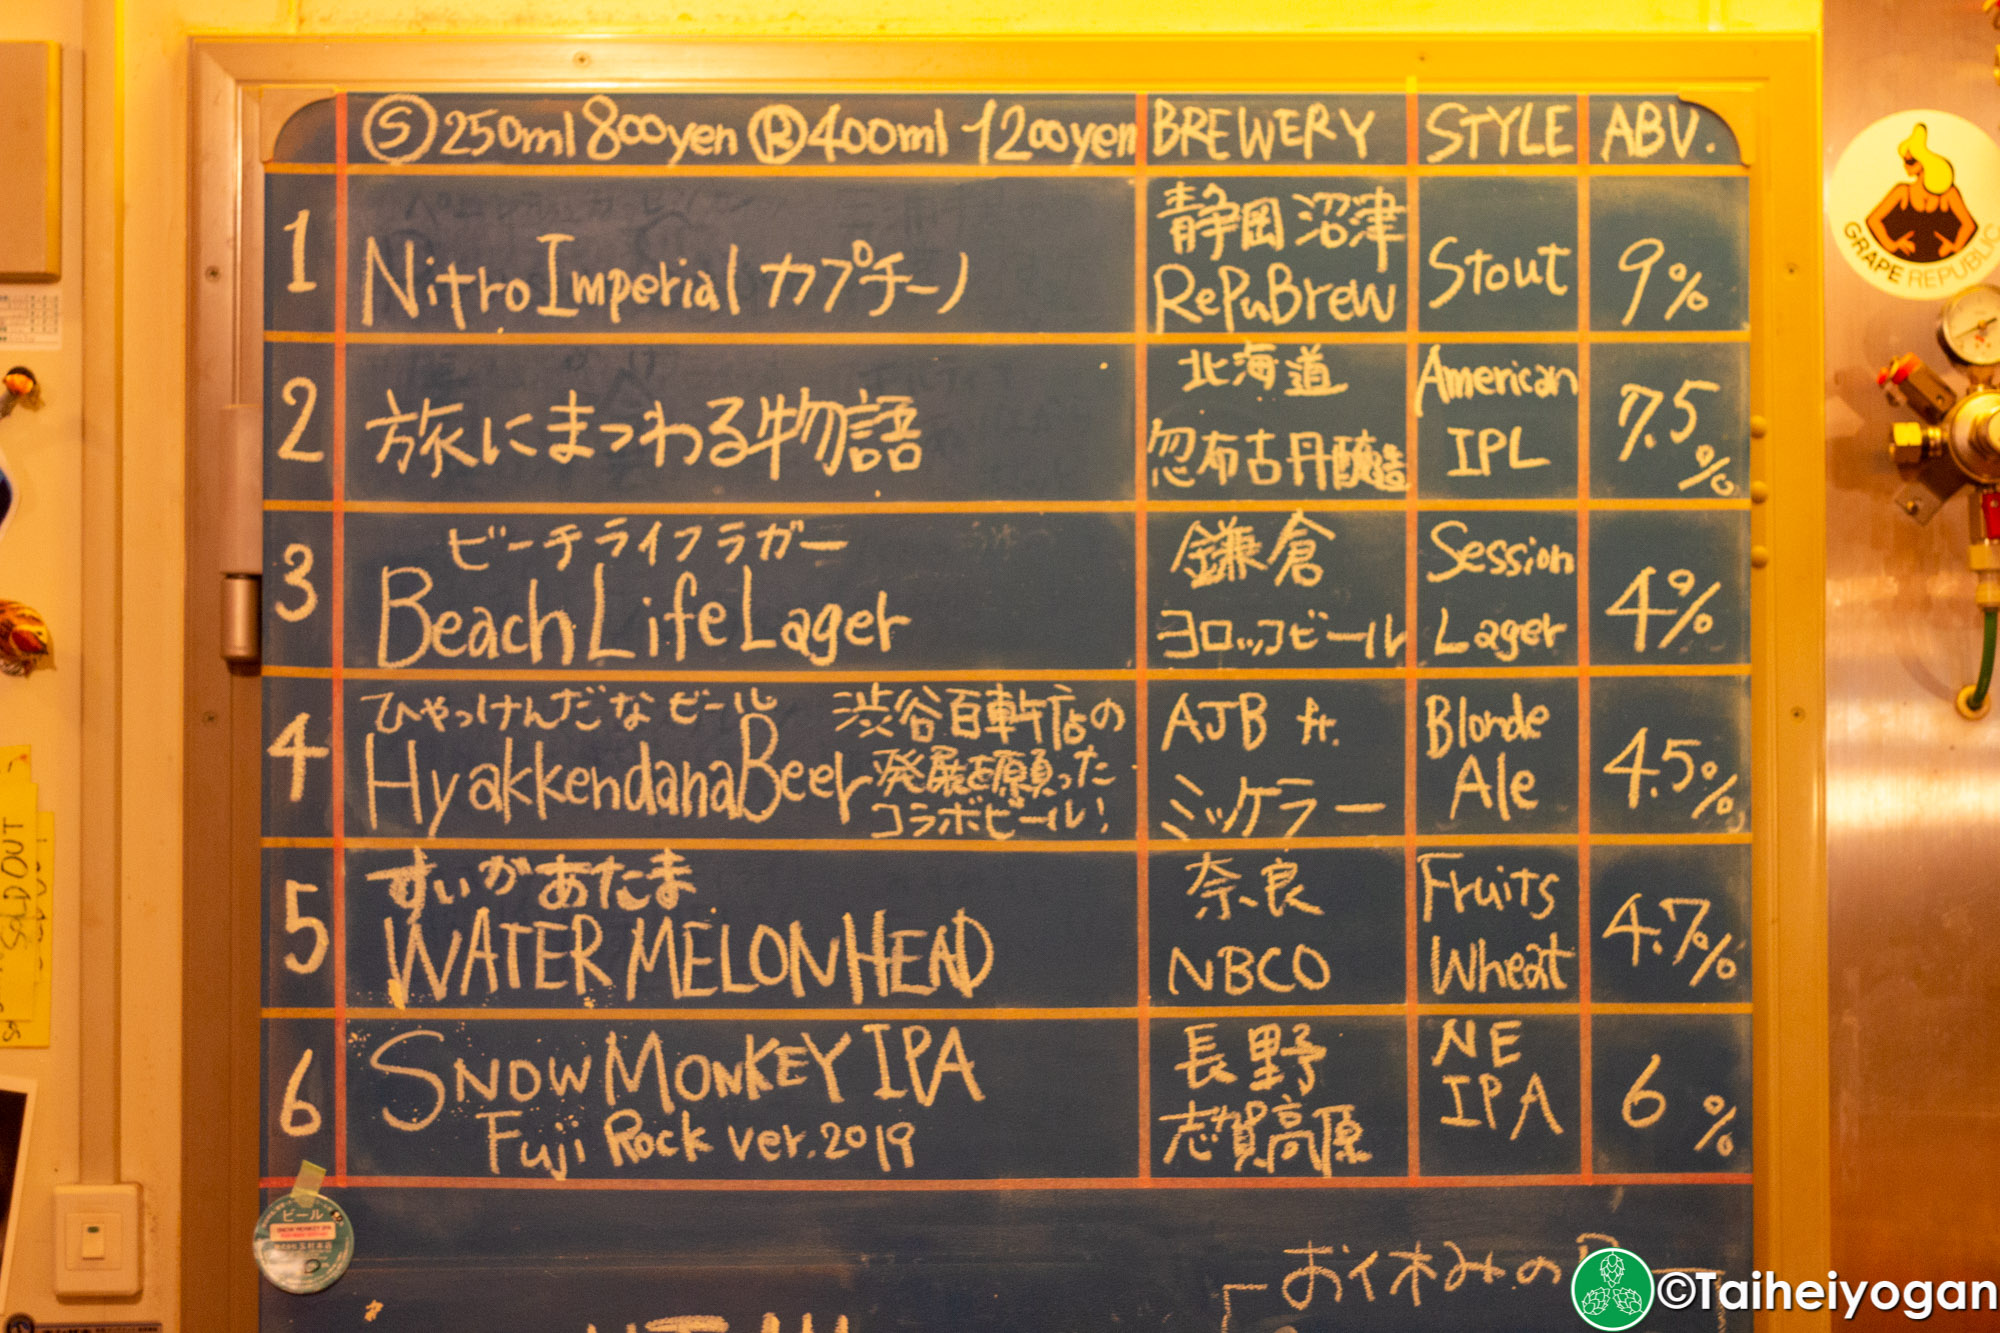 Ⓢ250ml 800yen Ⓡ400ml 1200yen BREWERY STYLE ABV.
1 Nitro Imperial カプチーノ 静岡沼津 RePuBrew Stout 9%
2 旅にまつわる物語 北海道 忽布古丹醸造 American IPL 7.5%
3 ビーチライフラガー
Beach Life Lager 鎌倉 ヨロッコビール Session Lager 4%
4 ひゃっけんだなビール
HyakkendanaBeer
渋谷百軒店の
発展を願った
コラボビール!
AJB ft. ミッケラー Blonde Ale 4.5%
5 すいかあたま
WATERMELON HEAD 奈良 NBCO Fruits Wheat 4.7%
6 SNOW MONKEY IPA
Fuji Rock ver. 2019 長野 志賀高原 NE IPA 6%
GRAPE REPUBLIC
SOLD OUT
ビール
SNOW MONKEY IPA
©Taiheiyogan